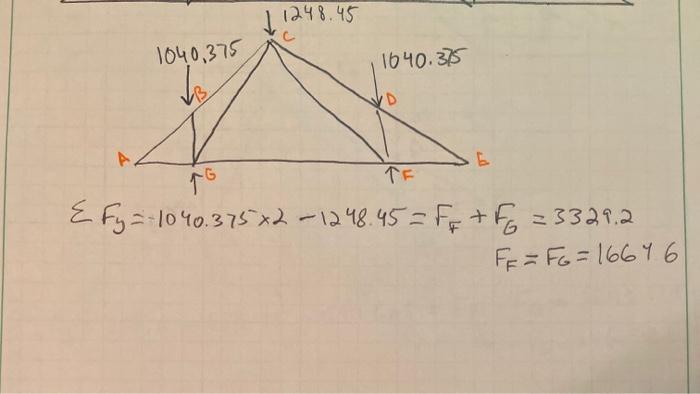 1248.45
C
1040.375
1040.375
B
D
A
G
F
E
Σ Fy = -1040.375 x 2 - 1248.45 = F_F + F_G = 3329.2
F_F = F_G = 1664.6